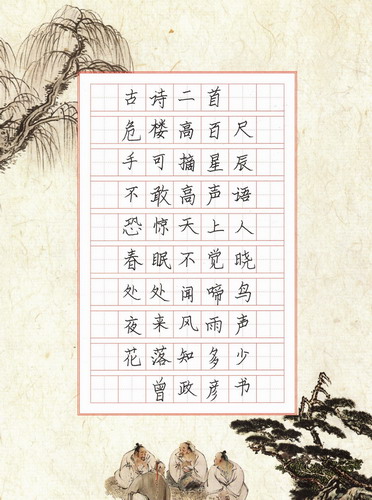 古诗二首
危楼高百尺
手可摘星辰
不敢高声语
恐惊天上人
春眠不觉晓
处处闻啼鸟
夜来风雨声
花落知多少
曾政彦书